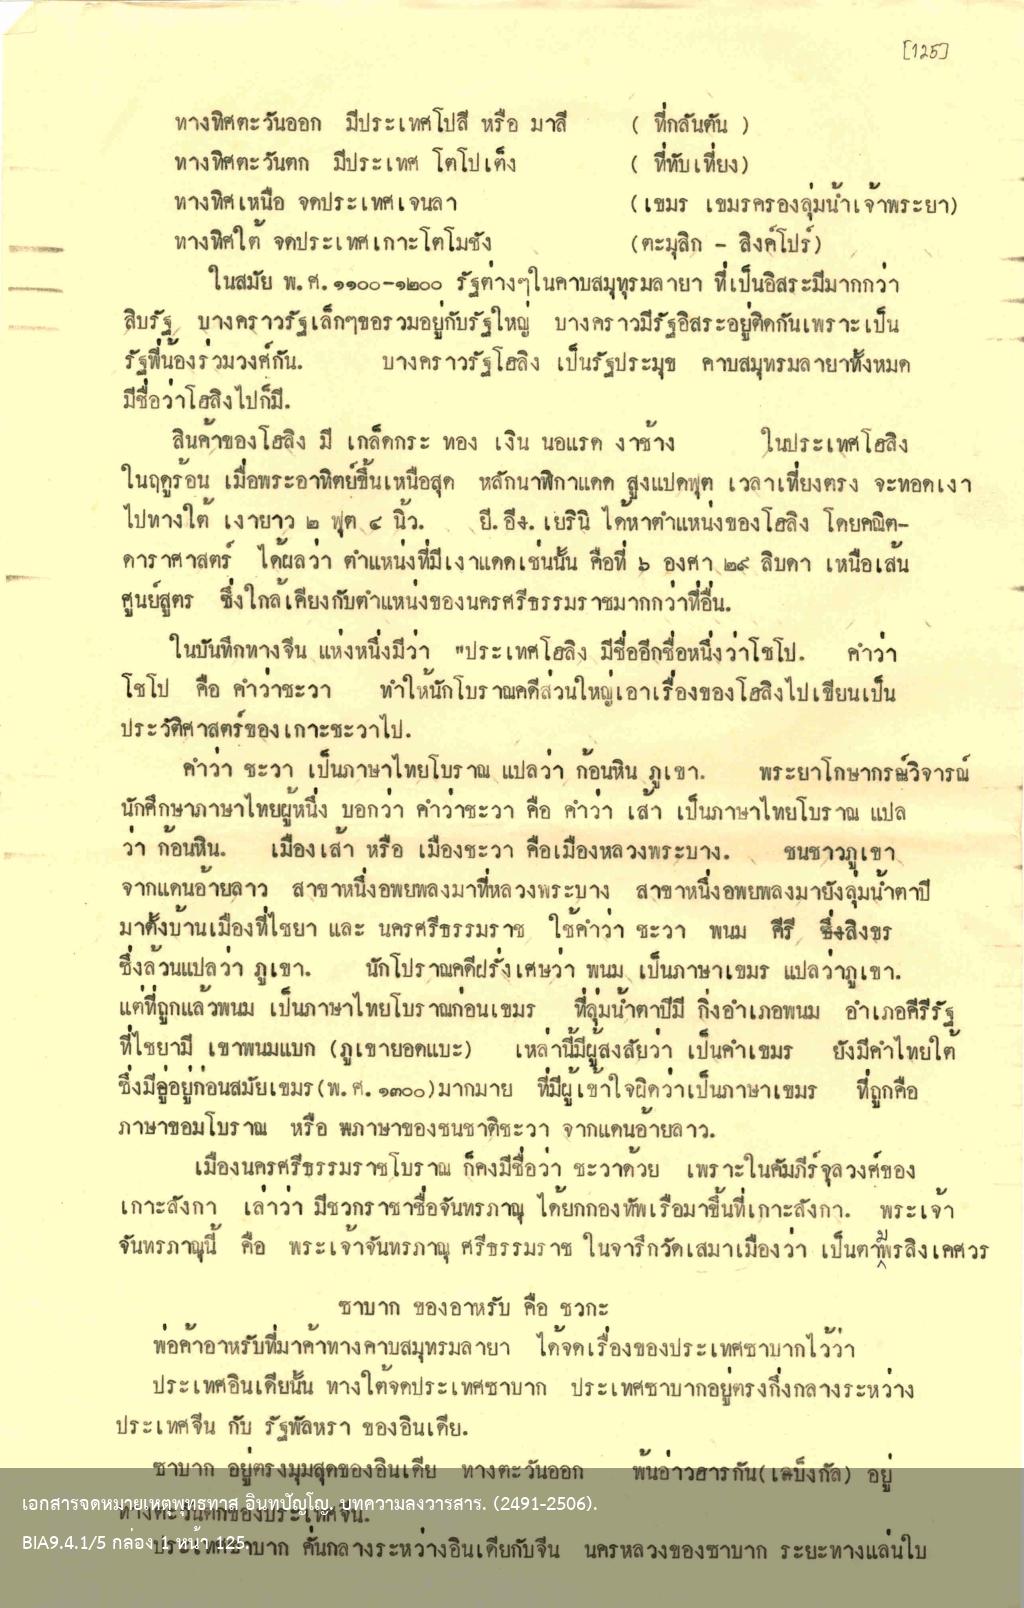 [125]
ทางทิศตะวันออก มีประเทศโปลี หรือ มาลี ( ที่กลันตัน )
ทางทิศตะวันตก มีประเทศ โตโปเต็ง ( ที่ทับเที่ยง)
ทางทิศเหนือ จดประเทศเจนลา (เขมร เขมรครองลุ่มน้ำเจ้าพระยา)
ทางทิศใต้ จดประเทศเกาะโตโมชัง (ตะมุสิก - สิงค์โปร์)
ในสมัย พ.ศ.๑๑๐๐-๑๒๐๐ รัฐต่างๆในคาบสมุทรมลายา ที่เป็นอิสระมีมากกว่า
สิบรัฐ บางคราวรัฐเล็กๆขอรวมอยู่กับรัฐใหญ่ บางคราวมีรัฐอิสระอยู่ติดกันเพราะเป็น
รัฐพี่น้องร่วมวงศ์กัน. บางคราวรัฐโฮลิง เป็นรัฐประมุข คาบสมุทรมลายาทั้งหมด
มีชื่อว่าโฮลิงไปก็มี.
สินค้าของโฮลิง มี เกล็ดกระ ทอง เงิน นอแรด งาช้าง ในประเทศโฮลิง
ในฤดูร้อน เมื่อพระอาทิตย์ขึ้นเหนือสุด หลักนาฬิกาแดด สูงแปดฟุต เวลาเที่ยงตรง จะทอดเงา
ไปทางใต้ เงายาว ๒ ฟุต ๔ นิ้ว. ยี.อีร. เยรินิ ได้หาตำแหน่งของโฮลิง โดยคณิต-
ดาราศาสตร์ ได้ผลว่า ตำแหน่งที่มีเงาแดดเช่นนั้น คือที่ ๖ องศา ๒๙ ลิบดา เหนือเส้น
ศูนย์สูตร ซึ่งใกล้เคียงกับตำแหน่งของนครศรีธรรมราชมากกว่าที่อื่น.
ในบันทึกทางจีน แห่งหนึ่งมีว่า "ประเทศโฮลิง มีชื่ออีกชื่อหนึ่งว่าโชโป. คำว่า
โชโป คือ คำว่าชะวา ทำให้นักโบราณคดีส่วนใหญ่เอาเรื่องของโฮลิงไปเขียนเป็น
ประวัติศาสตร์ของเกาะชะวาไป.
คำว่า ชะวา เป็นภาษาไทยโบราณ แปลว่า ก้อนหิน ภูเขา. พระยาโกษากรณ์วิจารณ์
นักศึกษาภาษาไทยผู้หนึ่ง บอกว่า คำว่าชะวา คือ คำว่า เส้า เป็นภาษาไทยโบราณ แปล
ว่า ก้อนหิน. เมืองเส้า หรือ เมืองชะวา คือเมืองหลวงพระบาง. ชนชาวภูเขา
จากแดนอ้ายลาว สาขาหนึ่งอพยพลงมาที่หลวงพระบาง สาขาหนึ่งอพยพลงมายังลุ่มน้ำตาปี
มาตั้งบ้านเมืองที่ไชยา และ นครศรีธรรมราช ใช้คำว่า ชะวา พนม คีรี ซึ่งสิงขร
ซึ่งล้วนแปลว่า ภูเขา. นักโปราณคดีฝรั่งเศษว่า พนม เป็นภาษาเขมร แปลว่าภูเขา.
แต่ที่ถูกแล้วพนม เป็นภาษาไทยโบราณก่อนเขมร ที่ลุ่มน้ำตาปีมี กิ่งอำเภอพนม อำเภอคีรีรัฐ
ที่ไชยามี เขาพนมแบก (ภูเขายอดแบะ) เหล่านี้มีผู้สงสัยว่า เป็นคำเขมร ยังมีคำไทยใต้
ซึ่งมีอู่อยู่ก่อนสมัยเขมร(พ.ศ.๑๓๐๐)มากมาย ที่มีผู้เข้าใจผิดว่าเป็นภาษาเขมร ที่ถูกคือ
ภาษาขอมโบราณ หรือ ภาษาของชนชาติชะวา จากแดนอ้ายลาว.
เมืองนครศรีธรรมราชโบราณ ก็คงมีชื่อว่า ชะวาด้วย เพราะในคัมภีร์จุลวงศ์ของ
เกาะลังกา เล่าว่า มีชวกราชาชื่อจันทรภาณุ ได้ยกกองทัพเรือมาขึ้นที่เกาะลังกา. พระเจ้า
จันทรภาณุนี้ คือ พระเจ้าจันทรภาณุ ศรีธรรมราช ในจารึกวัดเสมาเมืองว่า เป็นตามพรลิงเคศวร
ซาบาก ของอาหรับ คือ ชวกะ
พ่อค้าอาหรับที่มาค้าทางคาบสมุทรมลายา ได้จดเรื่องของประเทศซาบากไว้ว่า
ประเทศอินเดียนั้น ทางใต้จดประเทศซาบาก ประเทศซาบากอยู่ตรงกึ่งกลางระหว่าง
ประเทศจีน กับ รัฐพัลหรา ของอินเดีย.
ซาบาก อยู่ตรงมุมสุดของอินเดีย ทางตะวันออก พ้นอ่าวฮารกัน(เฉบ็งกัล) อยู่
ทางตะวันตกของประเทศจีน.
ประเทศซาบาก คั่นกลางระหว่างอินเดียกับจีน นครหลวงของซาบาก ระยะทางแล่นใบ
เอกสารจดหมายเหตุพุทธทาส อินทปัญโญ. บทความลงวารสาร. (2491-2506).
BIA9.4.1/5 กล่อง 1 หน้า 125.